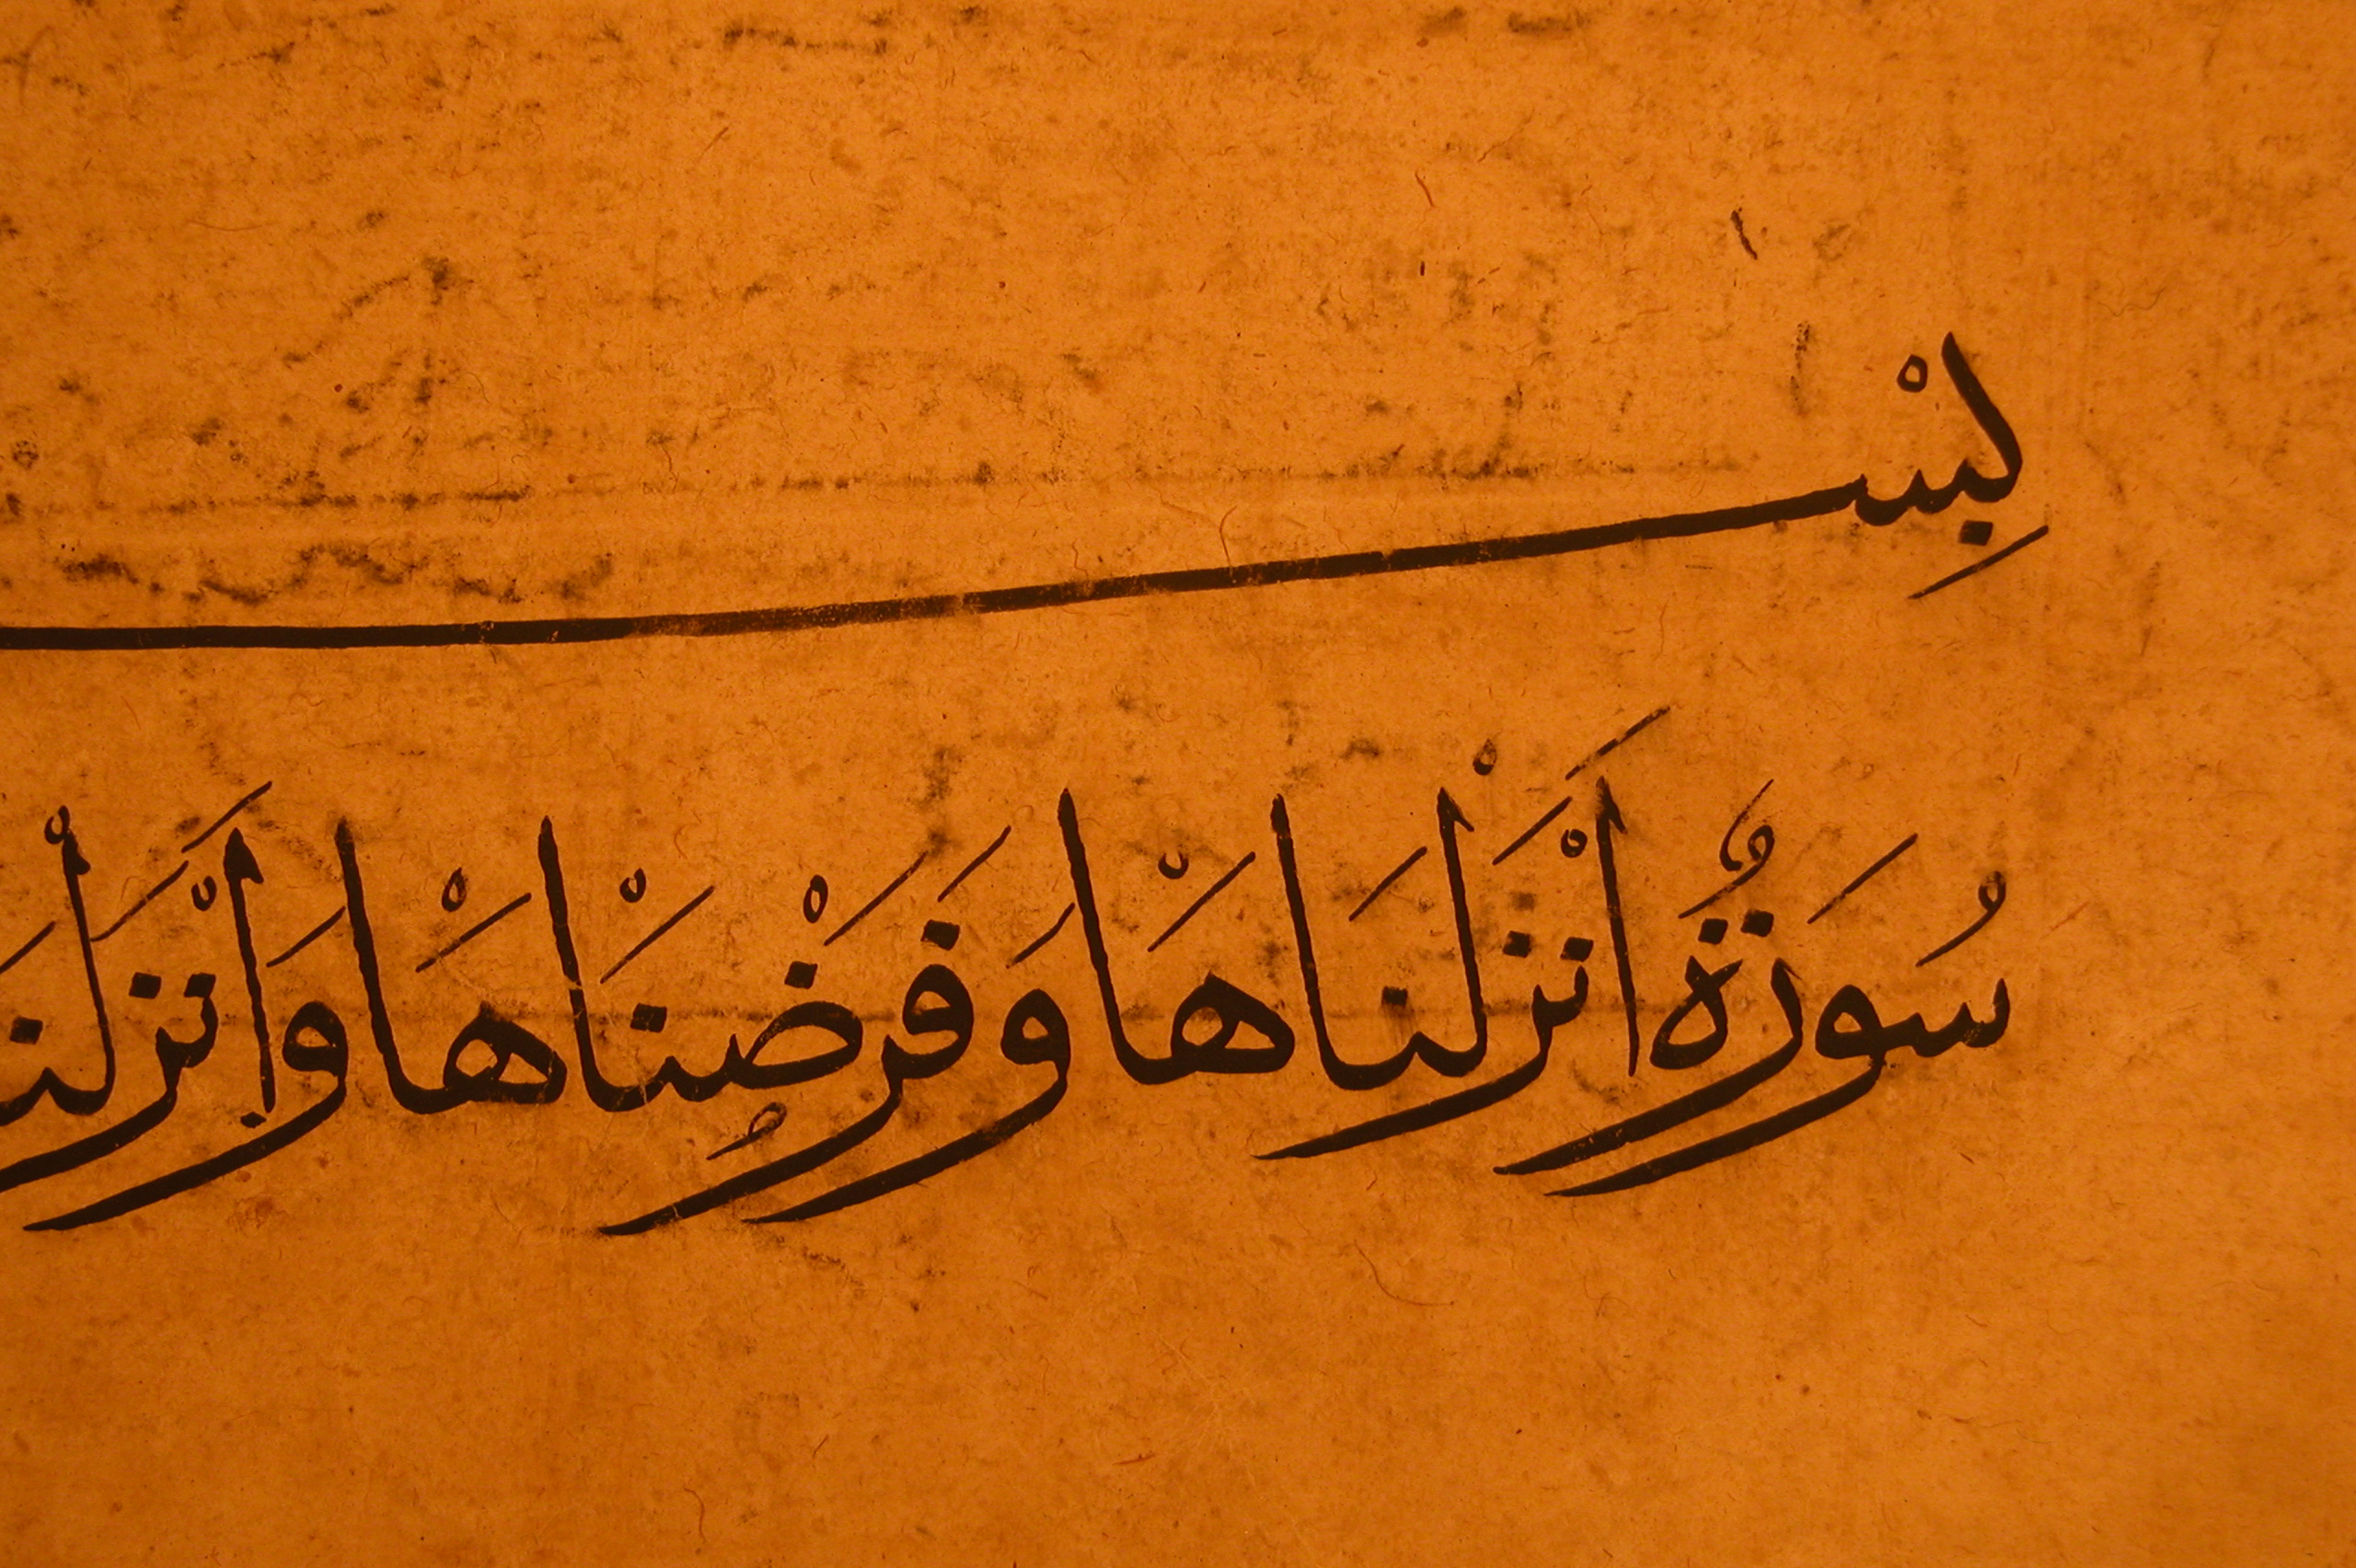 بِسْـ
سُورَةٌ أَنْزَلْنَاهَا وَفَرَضْنَاهَا وَأَنْزَلْنَـ